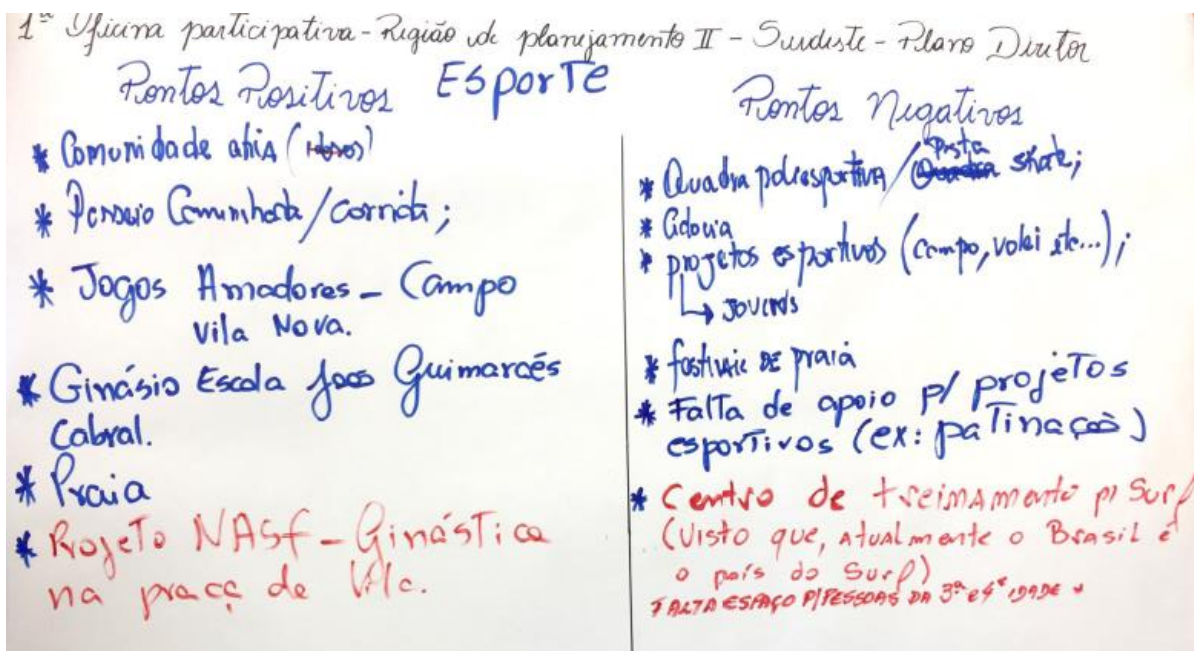 1ª Oficina participativa - Região de planejamento II - Sudeste - Plano Diretor
Esporte
Pontos Positivos
* Comunidade ativa (idosos)
* Passeio Caminhada/corrida;
* Jogos Amadores - Campo
Vila Nova.
* Ginásio Escola João Guimarães
Cabral.
* Praia
* Projeto NASF - Ginástica
na praça de Vila.
Pontos Negativos
* Quadra poliesportiva / Pista skate;
* Ciclovia
* projetos esportivos (campo, volei etc...);
↳ jovens
* festivais de praia
* Falta de apoio p/ projetos
esportivos (ex: patinação)
* Centro de treinamento p/ Surf
(Visto que, atualmente o Brasil é
o país do Surf)
FALTA ESPAÇO P/ PESSOAS DA 3ª e 4ª IDADE